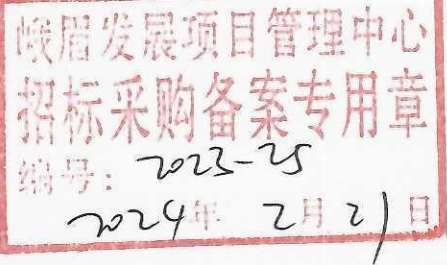 峨眉发展项目管理中心
招标采购备案专用章
编号：2023-25
2024年 2月 21日